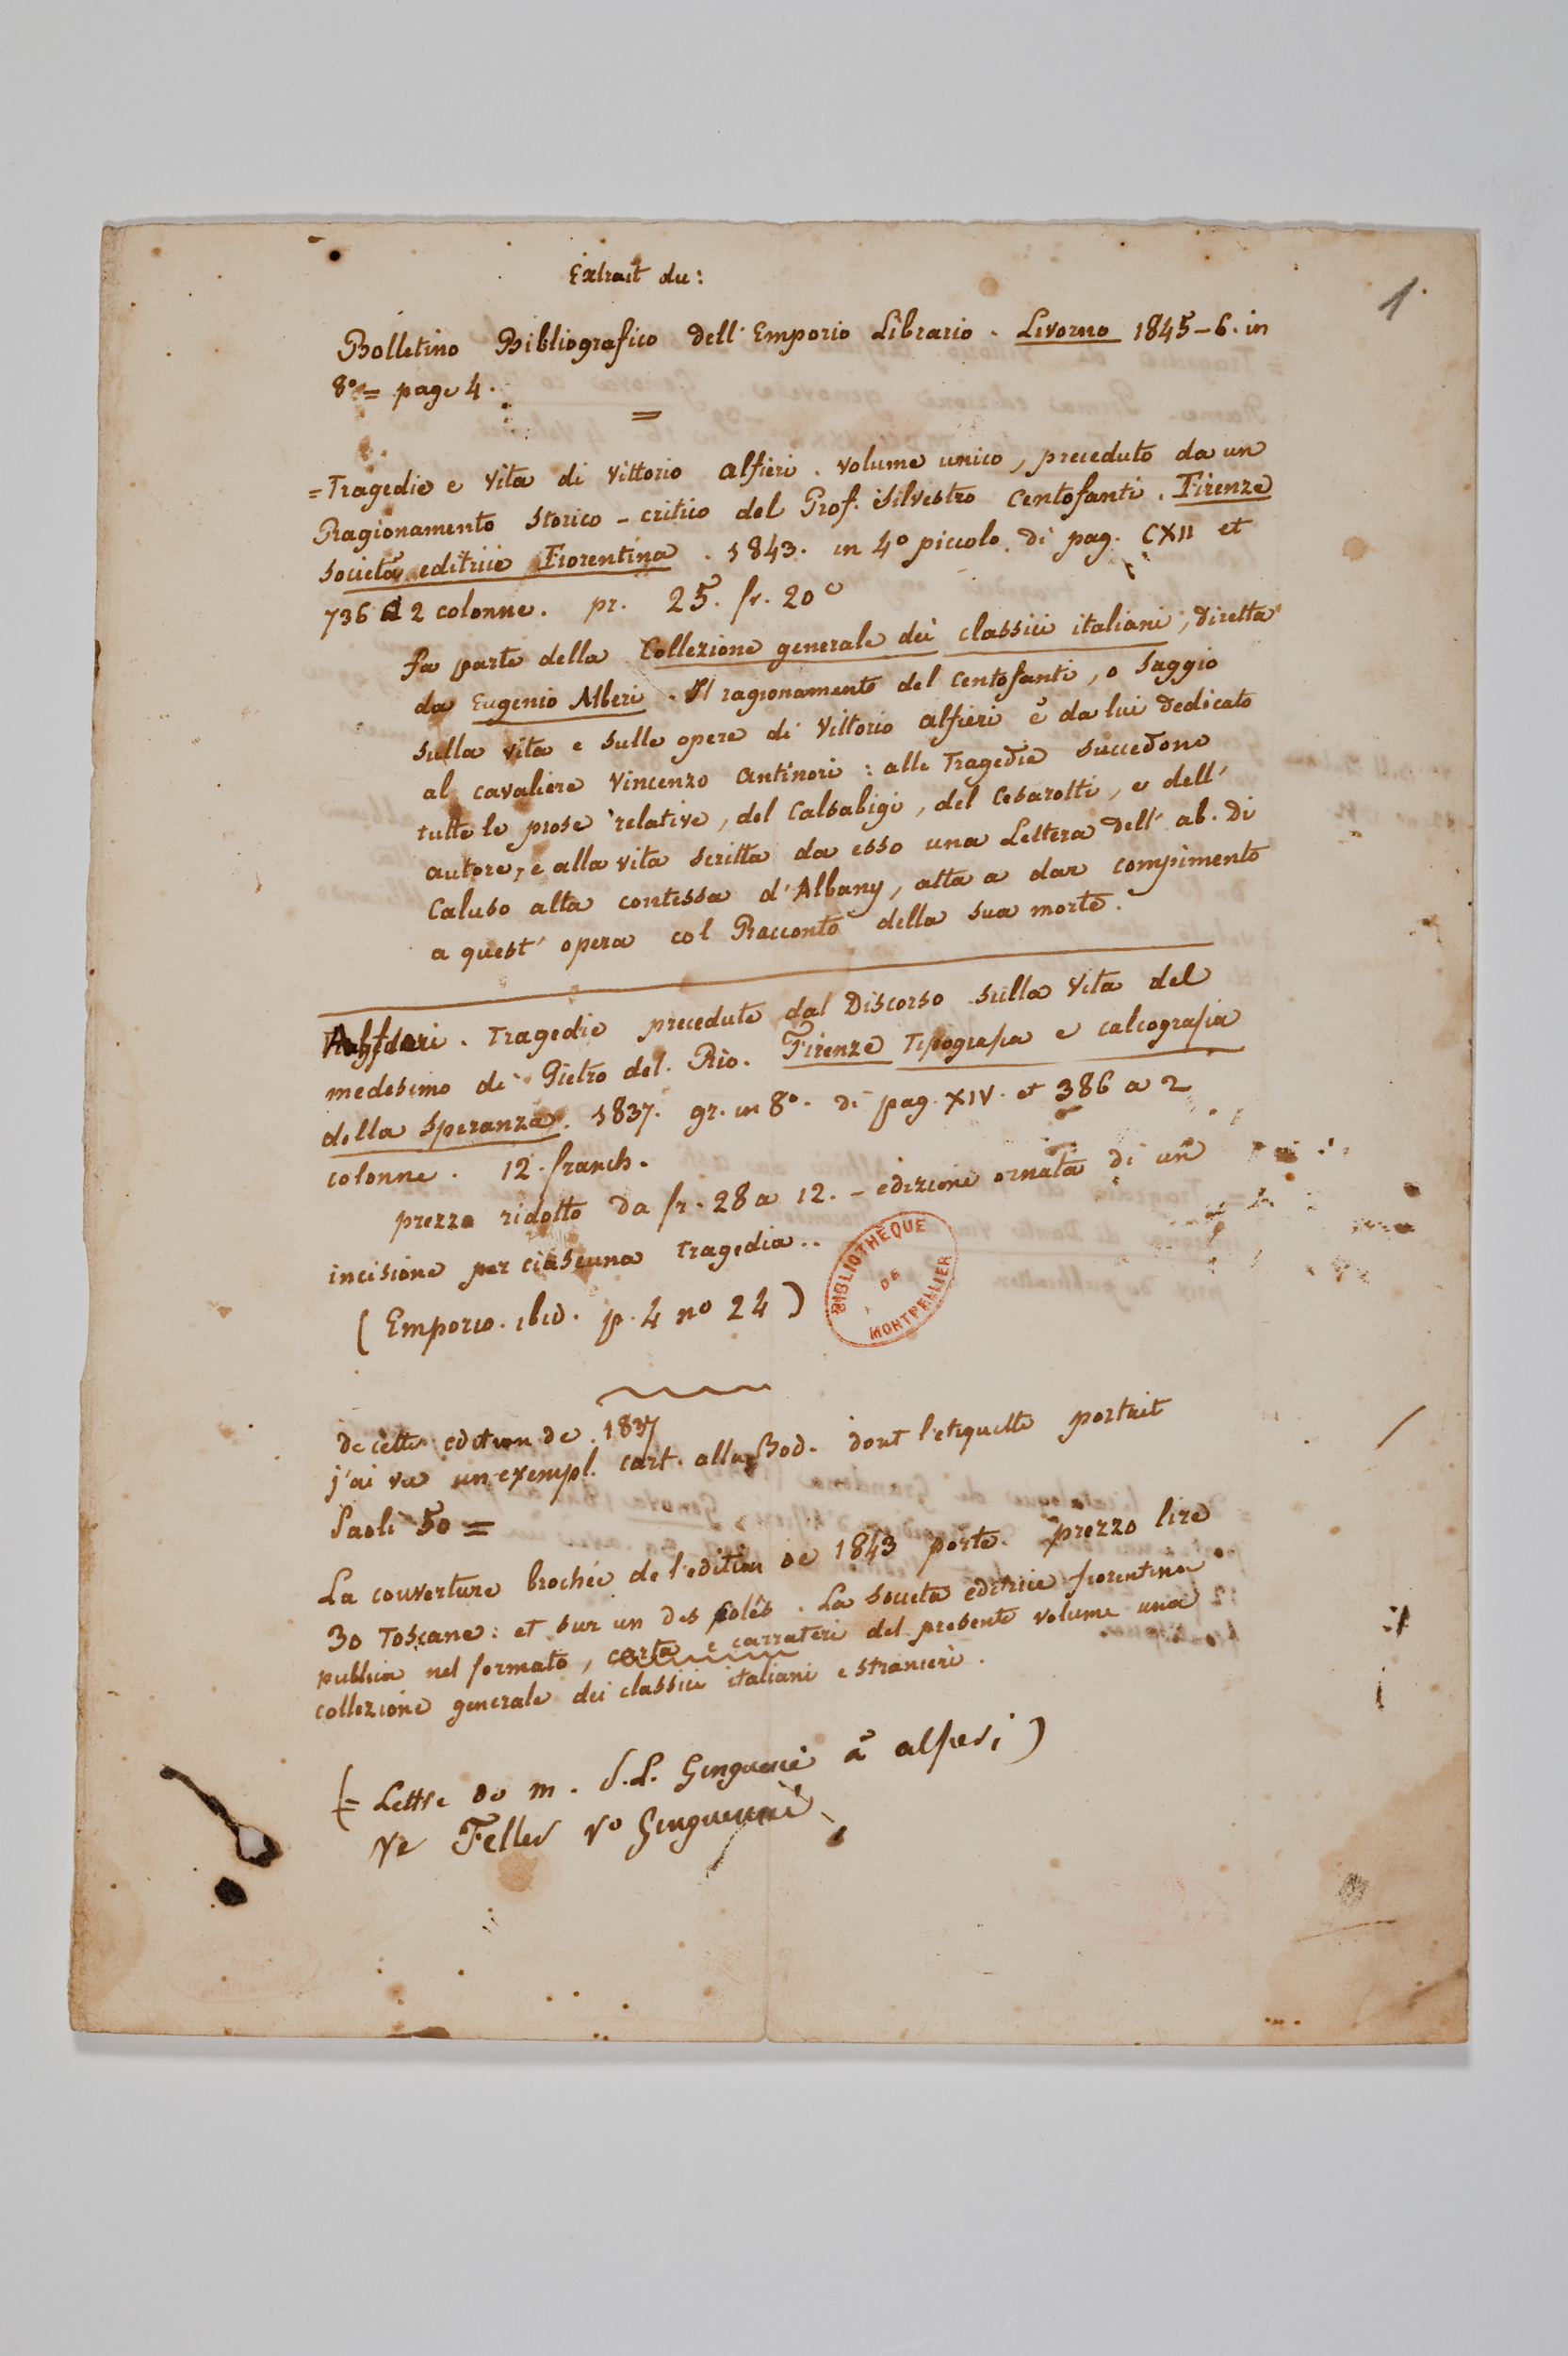 1
Extrait du:
Bolletino Bibliografico dell' Emporio Librario. Livorno 1845-6. in
8° = page 4.
=
= Tragedie e Vita di Vittorio Alfieri. volume unico, preceduto da un
Ragionamento storico-critico del Prof. Silvestro Centofanti. Firenze
società editrice Fiorentina. 1843. in 4° piccolo. di pag. CXII et
736 a 2 colonne. pr. 25. fr. 20 c
fa parte della Collezione generale dei classici italiani, diretta
da Eugenio Alberi. Il ragionamento del Centofanti, o Saggio
sulla vita e sulle opere di Vittorio Alfieri è da lui dedicato
al cavaliere Vincenzo Antinori: alle Tragedie succedono
tutte le prose relative, del Calsabigi, del Cesarotti, e dell'
autore, e alla vita scritta da esso una Lettera dell' ab. di
Caluso alla contessa d'Albany, atta a dar compimento
a quest' opera col Racconto della sua morte.
Alfieri. Tragedie precedute dal Discorso sulla Vita del
medesimo di Pietro del Rio. Firenze Tipografia e calcografia
della Speranza. 1837. gr. in 8°. di pag. XIV. et 386 a 2
colonne. 12. franch.
prezzo ridotto da fr. 28 a 12. - edizione ornata di un
incisione per ciascuna tragedia..
(Emporio. ibid. p. 4 n° 24)
BIBLIOTHEQUE
DE
MONTPELLIER
de cette edition de 1837
j'ai vu un exempl. cart. alla Bod. dont l'etiquette portait
Paoli 50 =
La couverture brochée de l'edition de 1843 porte. prezzo lire
30 Toscane: et sur un des colés. La società editrice fiorentina
publica nel formato, carta e carrateri del presente volume una
collezione generale dei classici italiani e stranieri.
(= Lettre de m. P.L. Ginguené à alfieri)
Ve Feller v° Ginguené